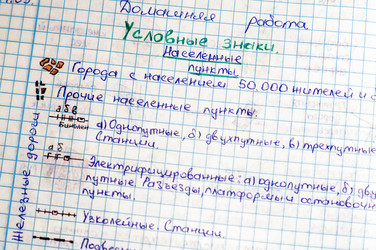 Домашняя работа
Условные знаки.
Населенные
пункты.
Города с населением 50.000 жителей и
Прочие населенные пункты.
а б в
а) Однопутные, б) двухпутные, в) трехпутные
Станции.
а б
Электрифицированные: а) однопутные, б)
путные. Разъезды, платформы и остановочн
пункты.
Узколейные. Станции.
Железные дороги